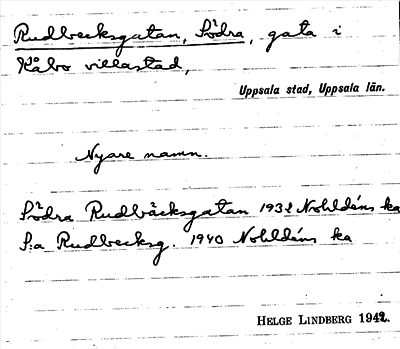 Rudbecksgatan, Södra, gata i
Kåbo villastad,
Uppsala stad, Uppsala län.
Nyare namn.
Södra Rudbäcksgatan 1932 Nohldéns ka
S:a Rudbecksg. 1940 Nohldéns ka
HELGE LINDBERG 1942.